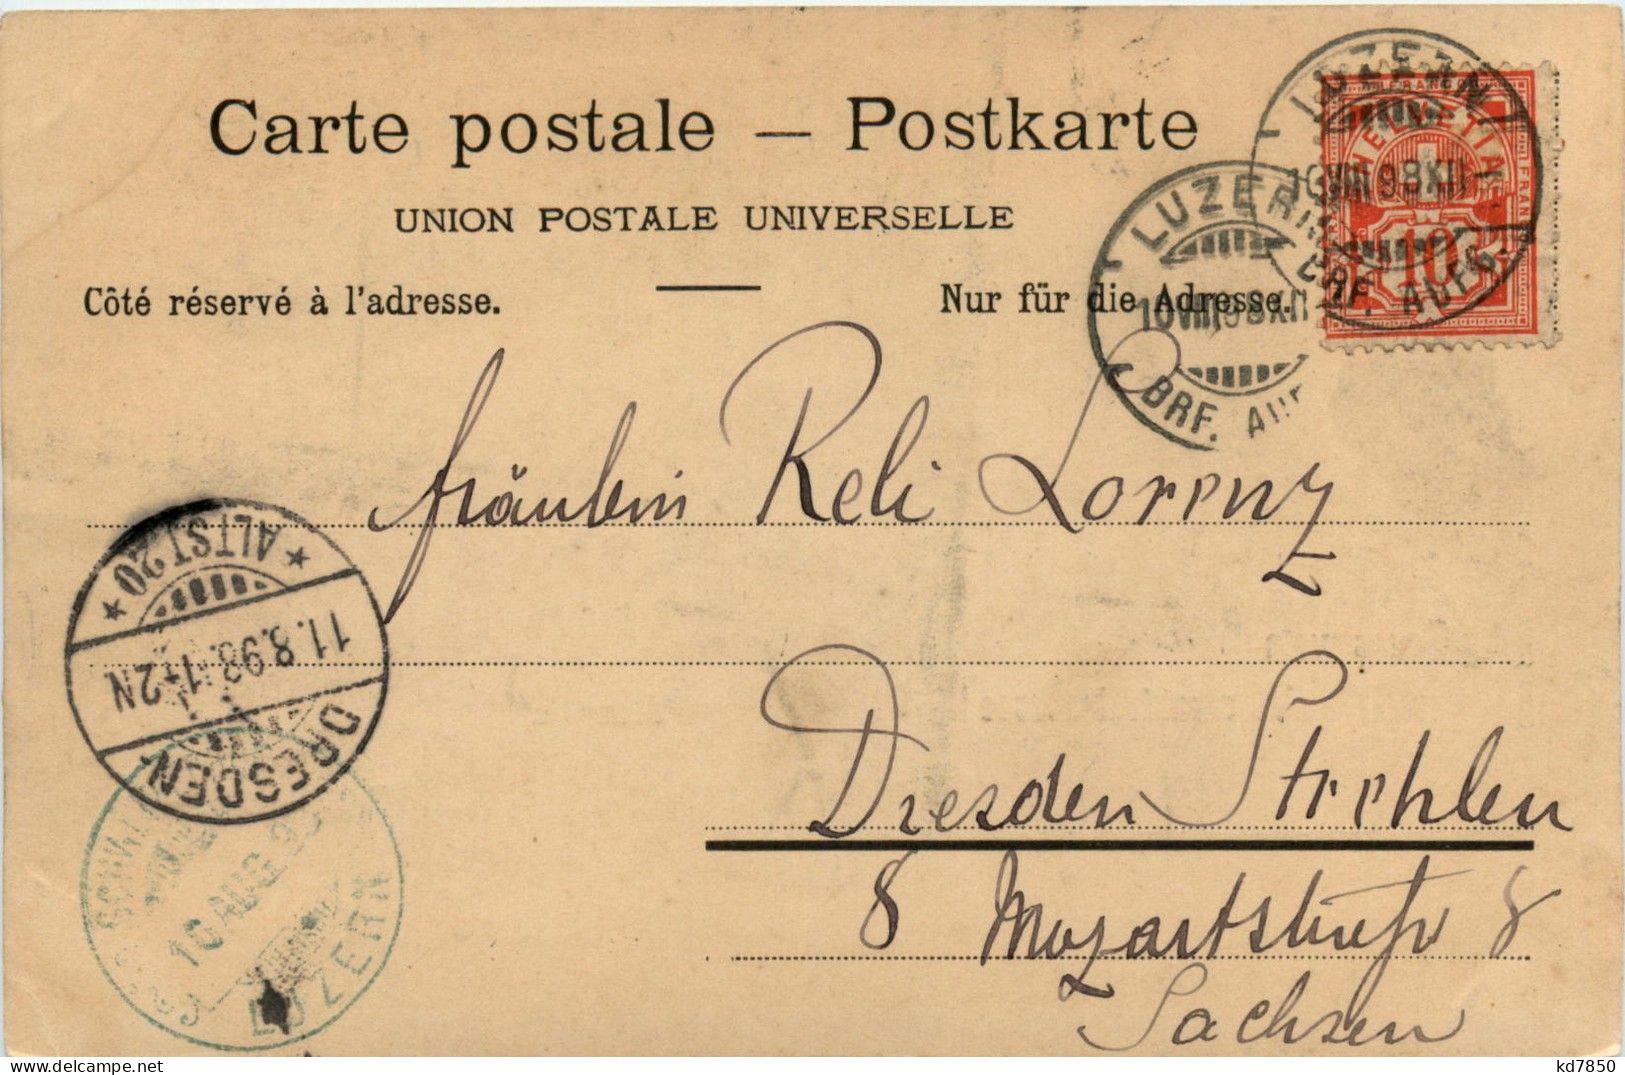 Carte postale — Postkarte
UNION POSTALE UNIVERSELLE
Côté réservé à l'adresse.
Nur für die Adresse.
HELVETIA
FRANCO
10
LUZERN
10 VIII 98 XII
BRF. AUFG.
LUZERN
10 VIII 98 XII
BRF. AUF
Fräulein Reli Lorenz
Dresden Strehlen
8 Mozartstraße 8
Sachsen
* ALTST. 20 *
11.8.98. 1-2N
DRESDEN
10 AUG 98
LUZERN
kd7850